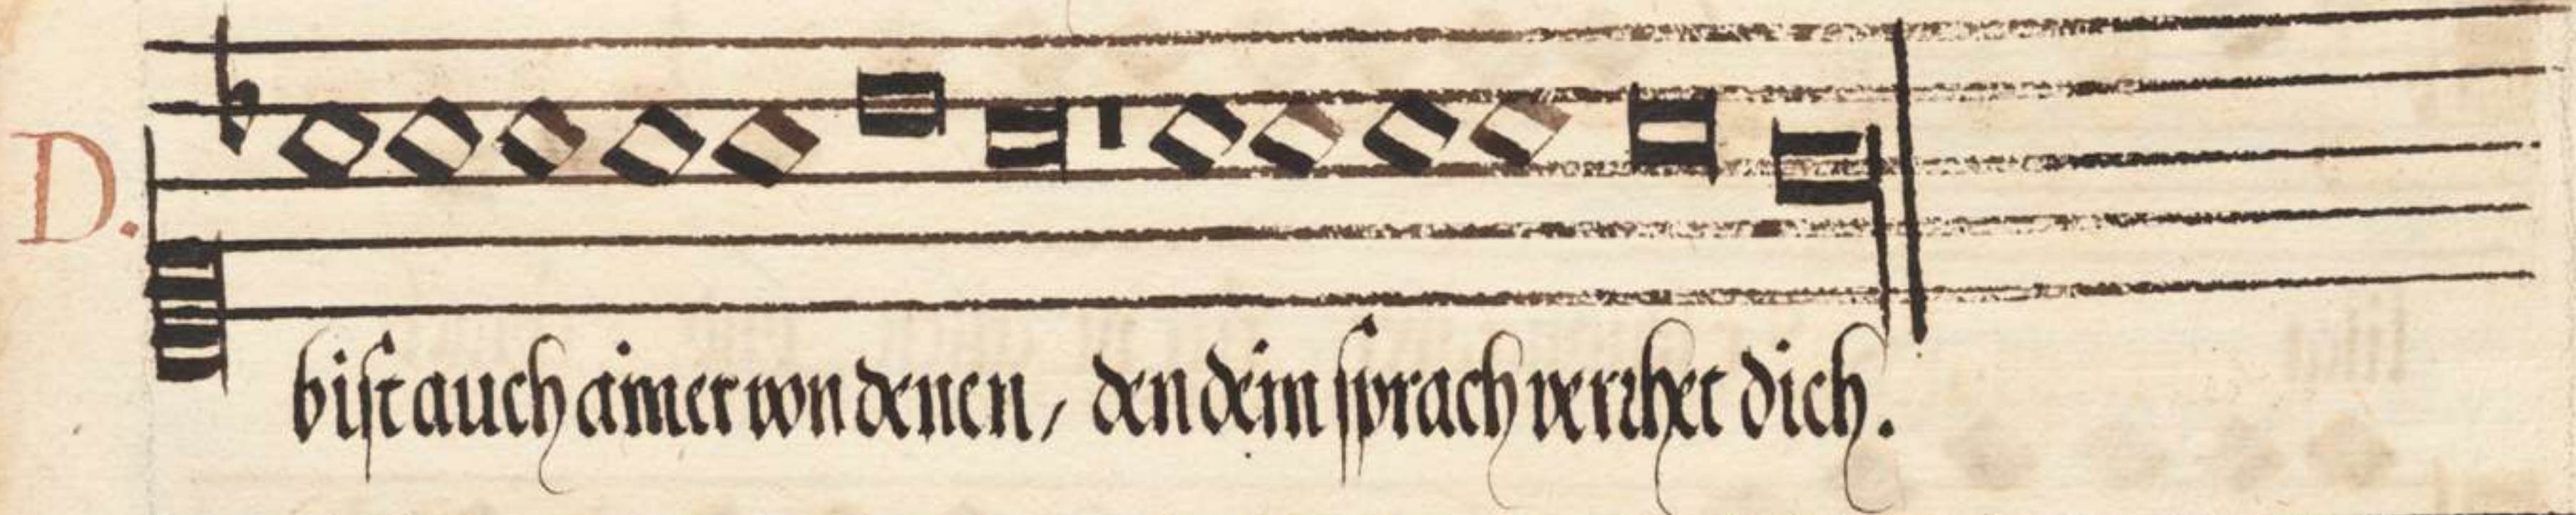 D.
bist auch aimer von denen, den dein sprach verrhet dich.